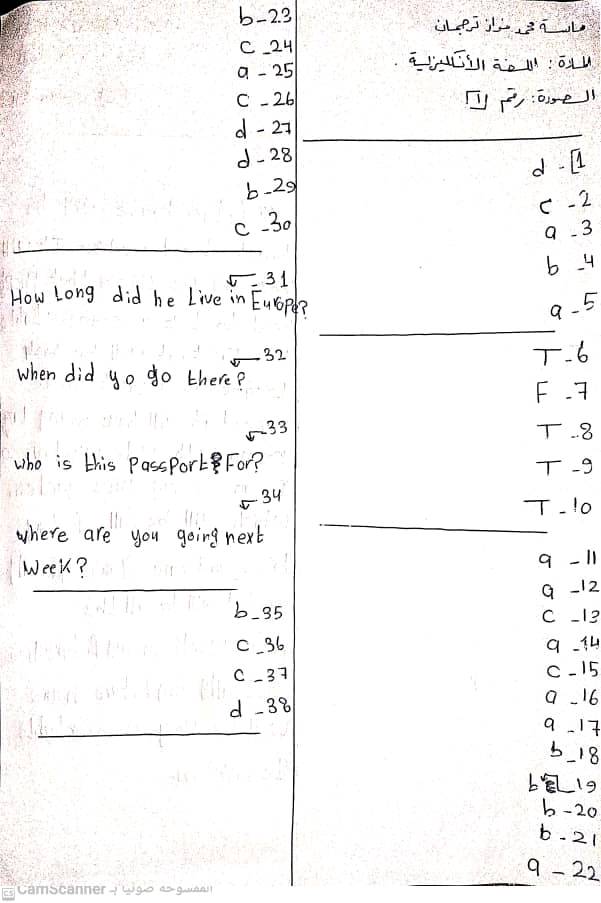 ماسة محمد نزار ترجمان
المادة: اللغة الأنكليزية.
الصورة: رقم [1]
d - [1
c - 2
a - 3
b - 4
a - 5
T - 6
F - 7
T - 8
T - 9
T - 10
a - 11
a - 12
c - 13
a - 14
c - 15
a - 16
a - 17
b - 18
b - 19
b - 20
b - 21
a - 22
b - 23
c - 24
a - 25
c - 26
d - 27
d - 28
b - 29
c - 30
31
How Long did he Live in Europe?
32
when did yo go there?
33
who is this Passport For?
34
where are you going next
Week?
b - 35
c - 36
c - 37
d - 38
الممسوحة ضوئيا بـ CamScanner
CS